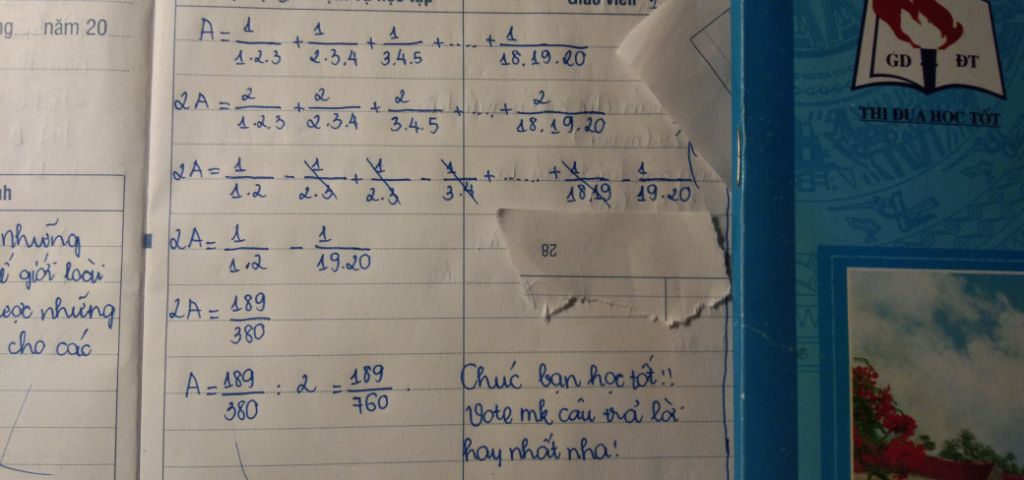 năm 20
A = 1/1.2.3 + 1/2.3.4 + 1/3.4.5 + ..... + 1/18.19.20
2A = 2/1.2.3 + 2/2.3.4 + 2/3.4.5 + ... + 2/18.19.20
2A = 1/1.2 - 1/2.3 + 1/2.3 - 1/3.4 + ...... + 1/18.19 - 1/19.20
2A = 1/1.2 - 1/19.20
2A = 189/380
A = 189/380 : 2 = 189/760.
Chúc bạn học tốt!!
Vote mk câu trả lời
hay nhất nha!
những
giới loài
những
cho các
28
GD ĐT
THI ĐUA HỌC TỐT